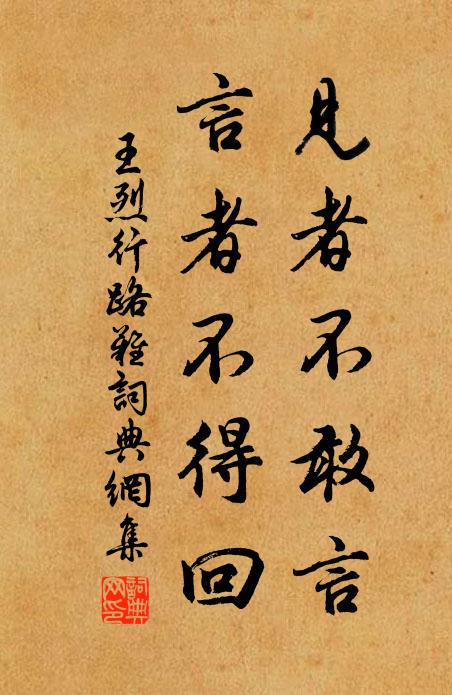 見者不敢言
言者不得回
王烈行路難詞典網集
詞典網印